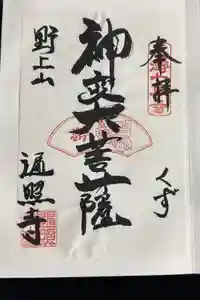 奉拝
くずう
神変大菩薩
野上山
遍照寺